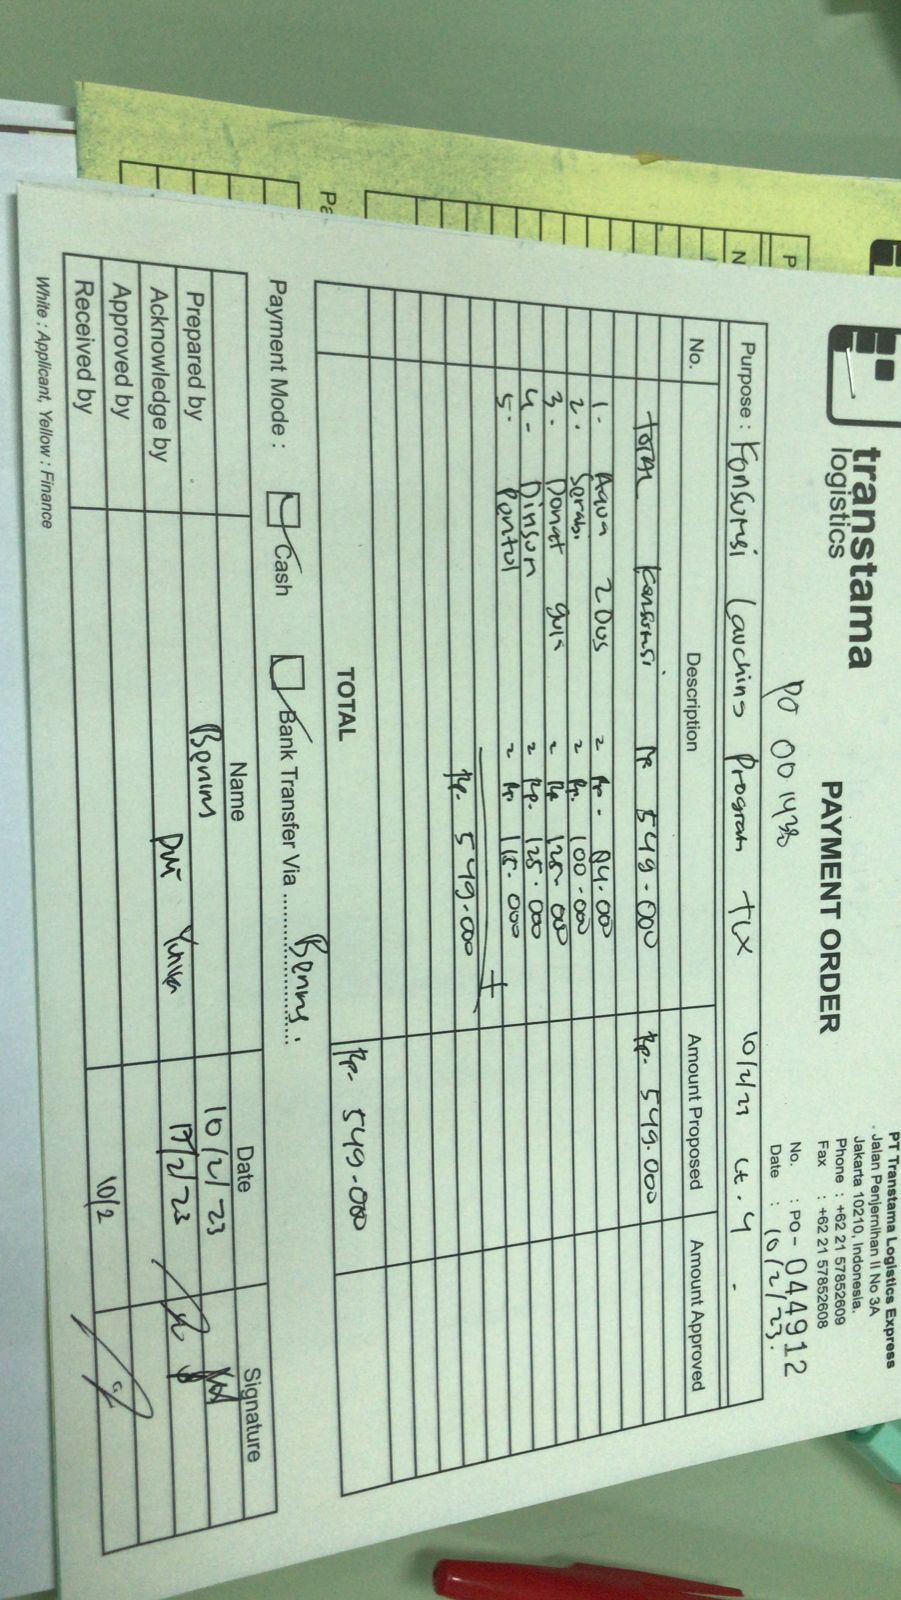 transtama
logistics
PAYMENT ORDER
PT Transtama Logistics Express
Jalan Penjernihan II No 3A
Jakarta 10210, Indonesia.
Phone : +62 21 57852609
Fax : +62 21 57852608
PO 001430
No. : PO - 044912
Date : 10/2/23.
Purpose : Konsumsi Lauching Program TLX 10/2/23 Lt. 4
No. Description Amount Proposed Amount Approved
Total Konsumsi Rp 549.000 Rp. 549.000
1. Aqua 2 Dus = Rp. 84.000
2. Serabi = Rp. 100.000
3. Donat gula = Rp 125.000
4. Dimsum = Rp. 125.000
5. = Rp. 115.000
Rp. 549.000
+
TOTAL Rp. 549.000
Payment Mode : Cash Bank Transfer Via ..............
Name Date Signature
Prepared by 10/2/23
Acknowledge by 17/2/23
Approved by
Received by 10/2
White : Applicant, Yellow : Finance
P
N
Pa